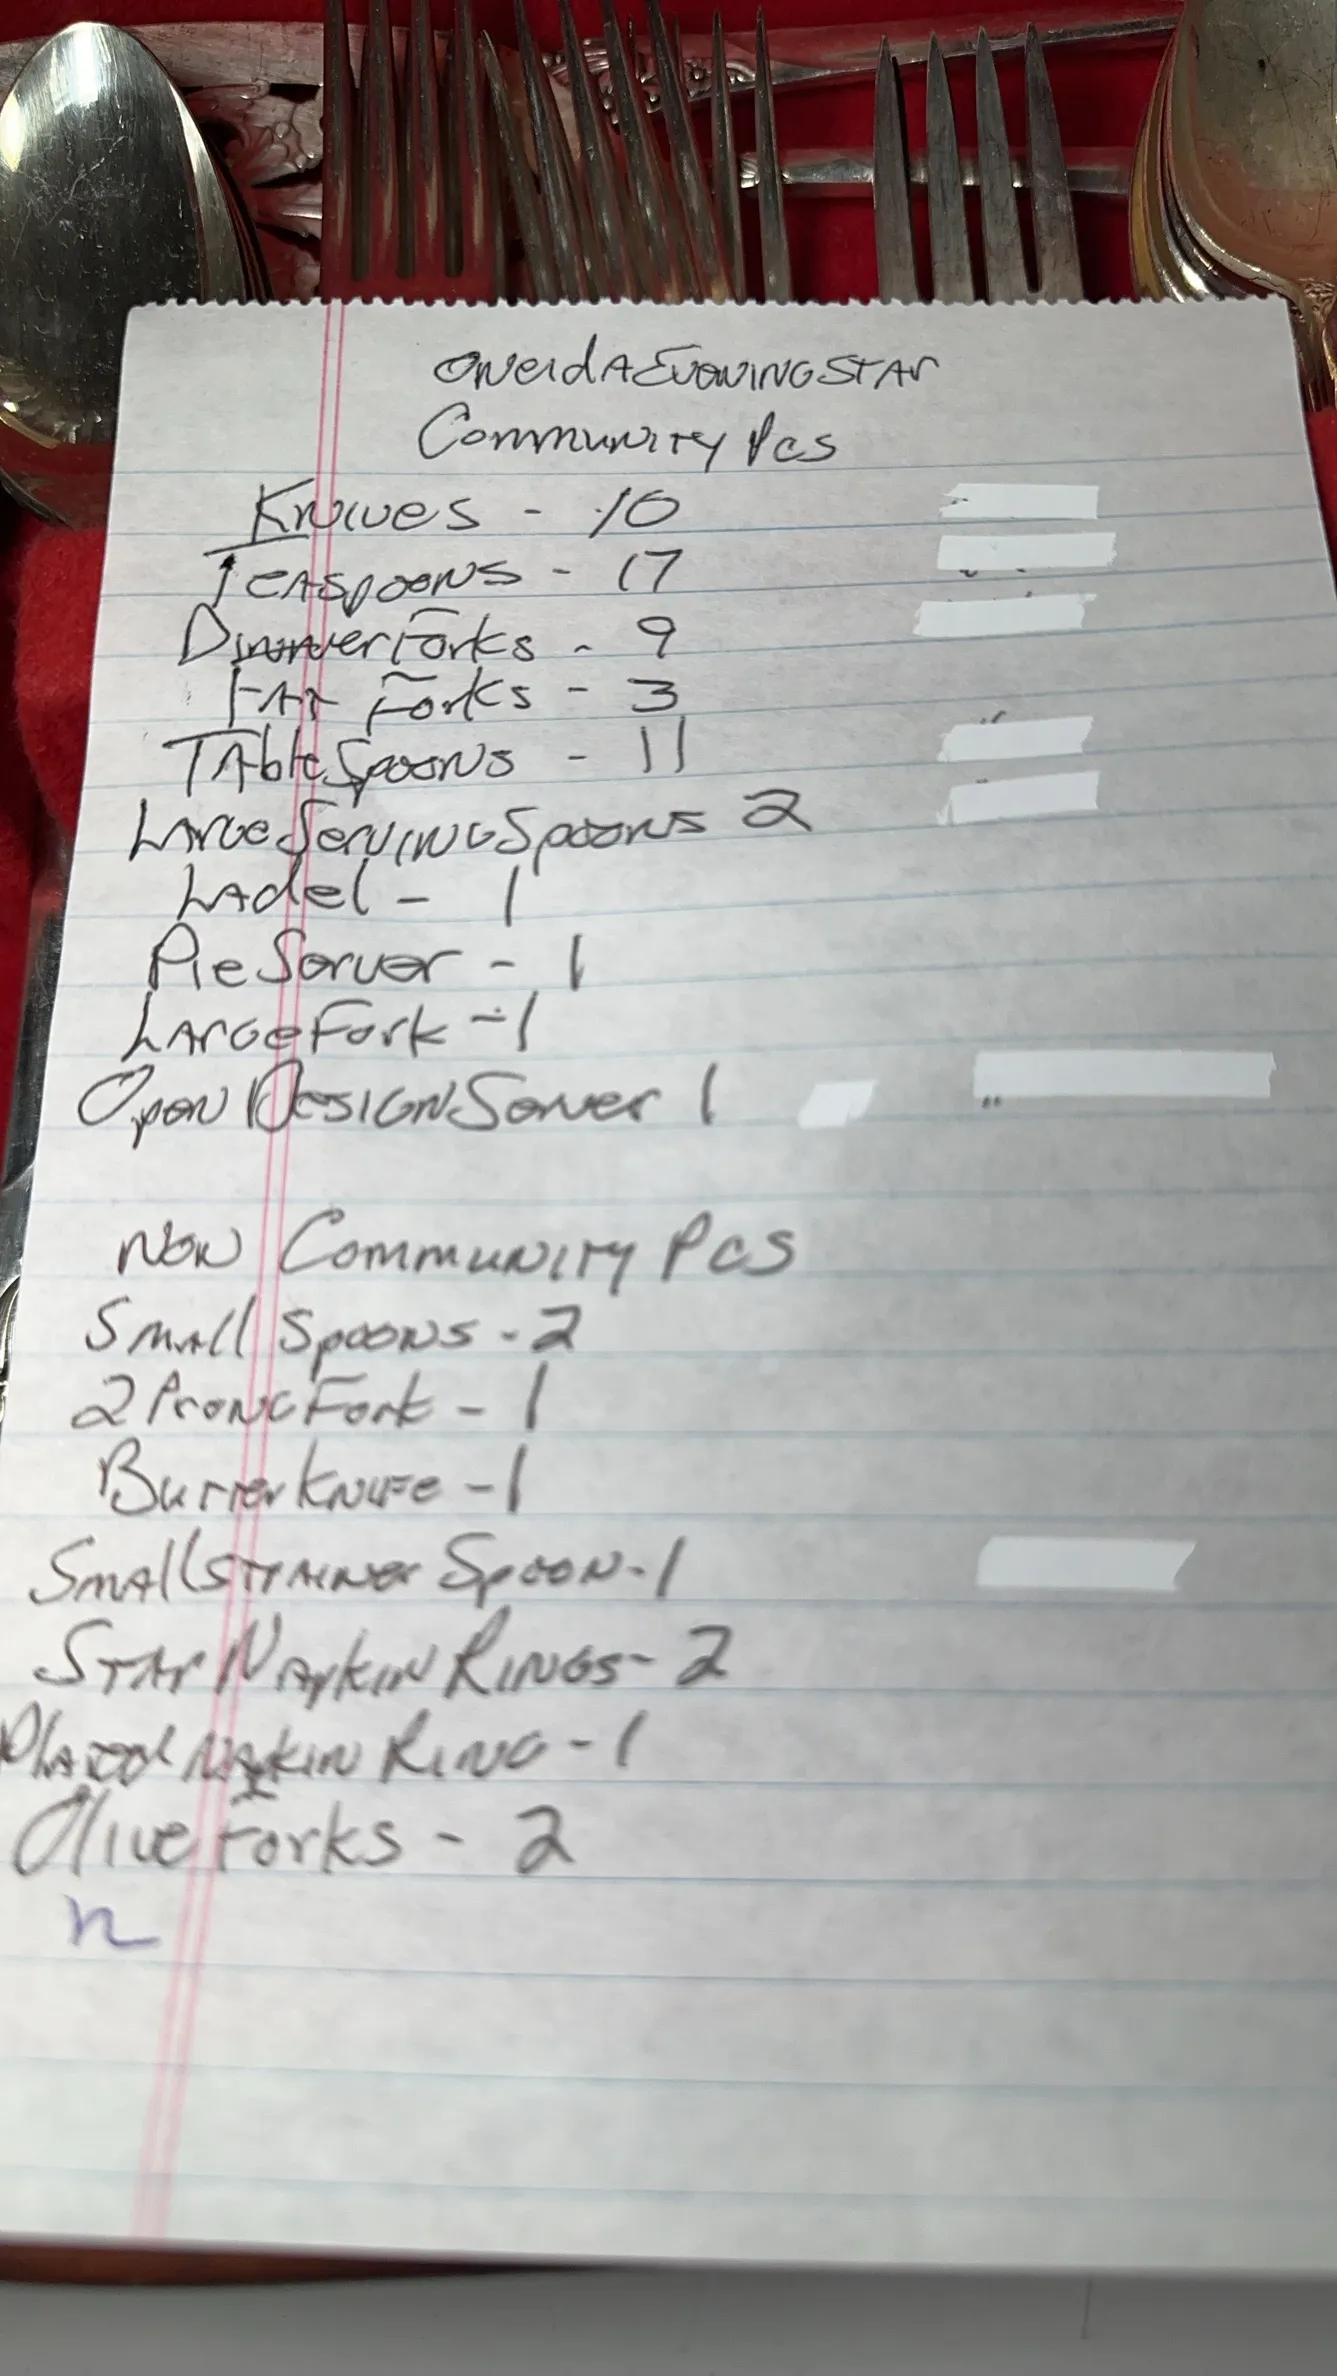 Oneida Evening Star
Community Pcs
Knives - 10
Teaspoons - 17
Dinner Forks - 9
Fat Forks - 3
Table Spoons - 11
Large Serving Spoons 2
Ladel - 1
Pie Server - 1
Large Fork - 1
Open Design Server 1
Non Community Pcs
Small Spoons - 2
2 Prong Fork - 1
Butter Knife - 1
Small Strainer Spoon - 1
Star Napkin Rings - 2
Napkin Ring - 1
Olive Forks - 2